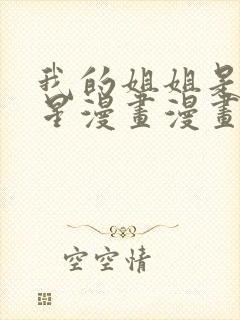 我的姐姐是
星漫畫漫畫
空空情